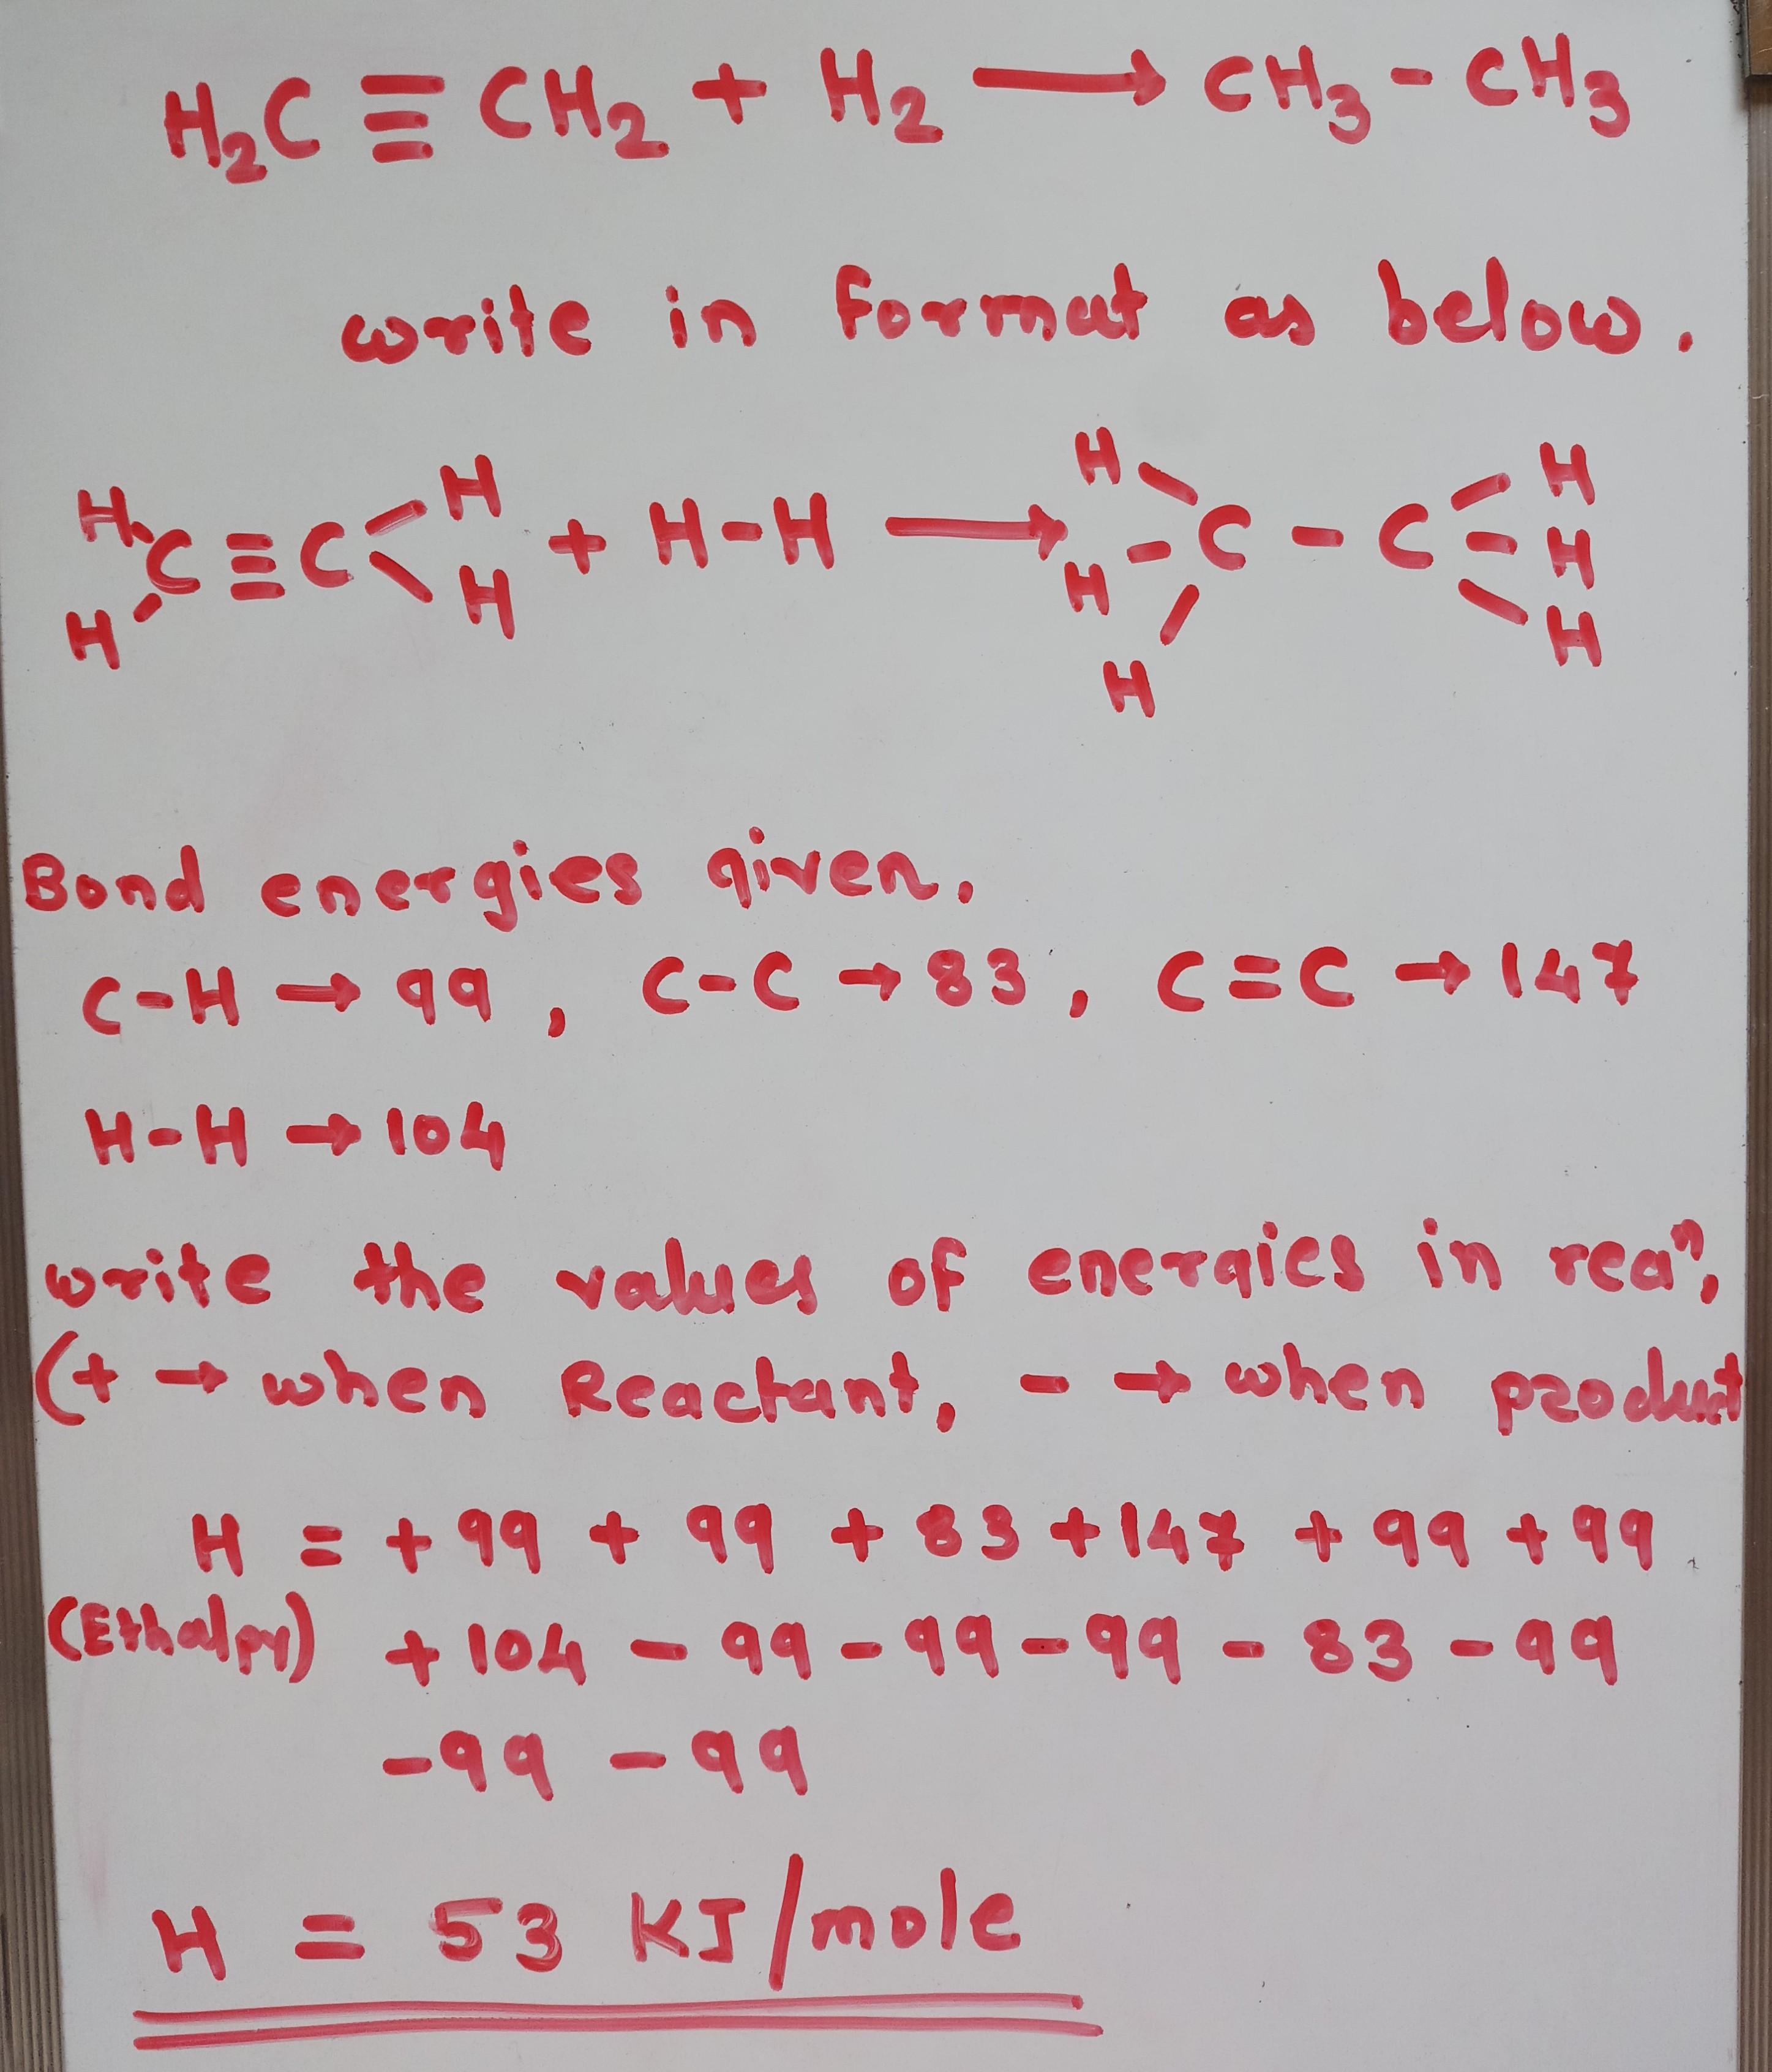 H₂C ≡ CH₂ + H₂ → CH₃ - CH₃
write in format as below.
H H
H C ≡ C H + H-H → H C - C H
H H H H
Bond energies given.
C-H → 99 , C-C → 83 , C=C → 147
H-H → 104
write the values of energies in reaⁿ,
(+ → when Reactant, - → when product
H = + 99 + 99 + 83 + 147 + 99 + 99
(Ethalpy) + 104 - 99 - 99 - 99 - 83 - 99
- 99 - 99
H = 53 KJ/mole